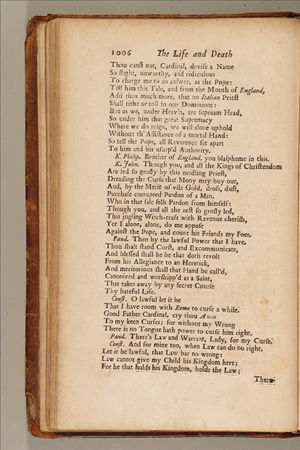 1006 The Life and Death
Thou canst not, Cardinal, devise a Name
So slight, unworthy, and ridiculous
To charge me to an answer, as the Pope:
Tell him this Tale, and from the Mouth of England,
Add thus much more, that no Italian Priest
Shall tithe or toll in our Dominions:
But as we, under Heav'n, are supream Head,
So under him that great Supremacy
Where we do reign, we will alone uphold
Without th' Assistance of a mortal Hand:
So tell the Pope, all Reverence set apart
To him and his usurp'd Authority.
K. Philip. Brother of England, you blaspheme in this.
K. John. Though you, and all the Kings of Christendom
Are led so grosly by this medling Priest,
Dreading the Curse that Mony may buy out,
And, by the Merit of vile Gold, dross, dust,
Purchase corrupted Pardon of a Man,
Who in that sale sells Pardon from himself:
Though you, and all the rest so grosly led,
This jugling Witch-craft with Revenue cherish,
Yet I alone, alone, do me oppose
Against the Pope, and count his Friends my Foes.
Pand. Then by the lawful Power that I have,
Thou shalt stand Curst, and Excommunicate,
And blessed shall he be that doth revolt
From his Allegiance to an Heretick,
And meritorious shall that Hand be call'd,
Canonized and worshipp'd as a Saint,
That takes away by any secret Course
Thy hateful Life.
Const. O lawful let it be
That I have room with Rome to curse a while.
Good Father Cardinal, cry thou Amen
To my keen Curses; for without my Wrong
There is no Tongue hath power to curse him right.
Pand. There's Law and Warrant, Lady, for my Curse.
Const. And for mine too, when Law can do no right.
Let it be lawful, that Law bar no wrong:
Law cannot give my Child his Kingdom here;
For he that holds his Kingdom, holds the Law;
There-